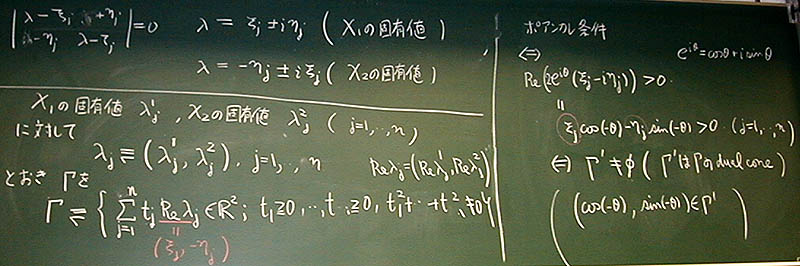 | λ-ξj +ηj |
| -ηj λ-ξj | =0 λ = ξj ± iηj ( X1の固有値 )
λ = -ηj ± iξj ( X2の固有値 )
X1の固有値 λj^1 , X2の固有値 λj^2 ( j=1,..,n )
に対して
λj ≡ (λj^1, λj^2), j=1,..,n Reλj=(Reλj^1, Reλj^2)
とおき Γを
Γ ≡ { Σ_{j=1}^n tj Reλj ∈ R^2 ; t1≥0, .., tn≥0, t1^2+..+tn^2≠0 }
=
(ξj, -ηj)
ポアンカレ条件
⇔ e^{iθ}=cosθ+i sinθ
Re(e^{iθ}(ξj-iηj)) > 0.
=
ξj cos(-θ)-ηj sin(-θ) > 0 (j=1,..,n)
⇔ Γ' ≠ φ ( Γ'はΓのdual cone )
( (cos(-θ), sin(-θ)) ∈ Γ' )